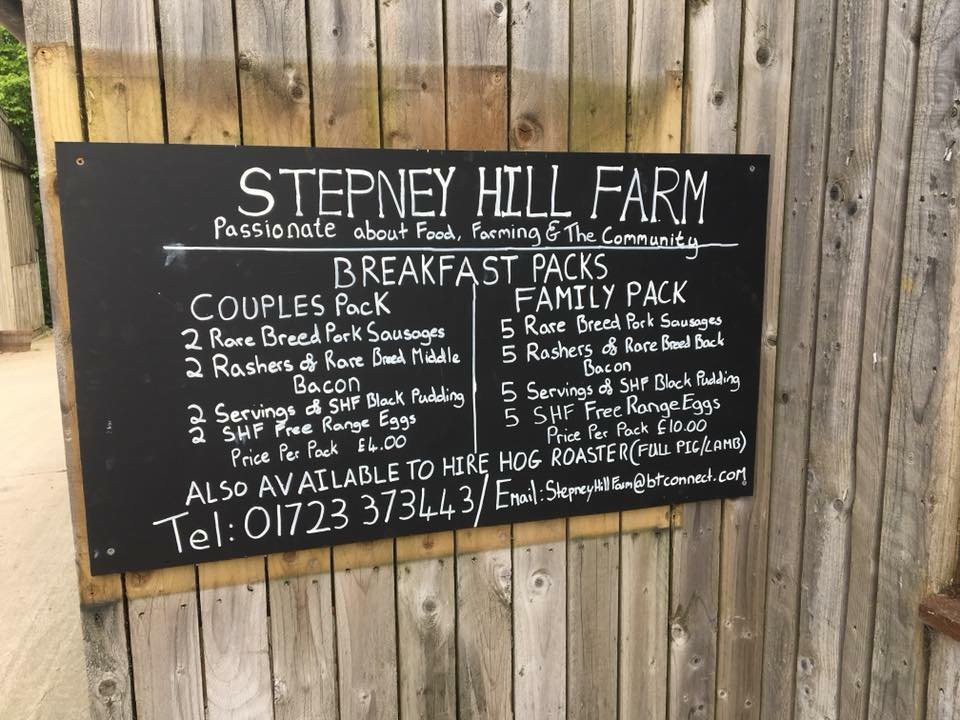 STEPNEY HILL FARM
Passionate about Food, Farming & The Community
BREAKFAST PACKS
COUPLES PacK
2 Rare Breed Pork Sausages
2 Rashers of Rare Breed Middle
Bacon
2 Servings of SHF Black Pudding
2 SHF Free Range Eggs
Price Per Pack £4.00
FAMILY PACK
5 Rare Breed Pork Sausages
5 Rashers of Rare Breed Back
Bacon
5 Servings of SHF Black Pudding
5 SHF Free Range Eggs
Price Per Pack £10.00
ALSO AVAILABLE TO HIRE HOG ROASTER (FULL PIG/LAMB)
Tel: 01723 373443/ Email: StepneyHillFarm@btconnect.com